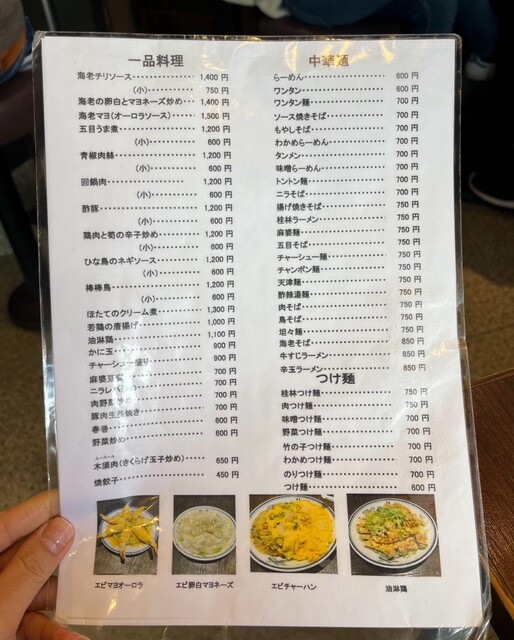 一品料理
海老チリソース 1,400 円
(小) 750 円
海老の卵白とマヨネーズ炒め 1,400 円
海老マヨ(オーロラソース) 1,500 円
五目うま煮 1,200 円
(小) 600 円
青椒肉絲 1,200 円
(小) 600 円
回鍋肉 1,200 円
(小) 600 円
酢豚 1,200 円
(小) 600 円
鶏肉と筍の辛子炒め 1,200 円
(小) 600 円
ひな鳥のネギソース 1,200 円
(小) 600 円
棒棒鳥 1,200 円
(小) 600 円
ほたてのクリーム煮 1,300 円
若鶏の唐揚げ 1,000 円
油淋鶏 1,100 円
かに玉 900 円
チャーシュー盛り 900 円
麻婆豆腐 700 円
ニラレバ 700 円
肉野菜炒め 700 円
豚肉生姜焼き 700 円
春巻 600 円
野菜炒め 600 円
木須肉(きくらげ玉子炒め) 650 円
焼餃子 450 円
中華麺
らーめん 600 円
ワンタン 600 円
ワンタン麺 700 円
ソース焼きそば 700 円
もやしそば 700 円
わかめらーめん 700 円
タンメン 700 円
味噌らーめん 700 円
トントン麺 700 円
ニラそば 700 円
揚げ焼きそば 750 円
桂林ラーメン 750 円
麻婆麺 750 円
五目そば 750 円
チャーシュー麺 750 円
チャンポン麺 750 円
天津麺 750 円
酢辣湯麺 750 円
肉そば 750 円
鳥そば 750 円
坦々麺 750 円
海老そば 850 円
牛すじラーメン 850 円
辛玉ラーメン 850 円
つけ麺
桂林つけ麺 750 円
肉つけ麺 750 円
味噌つけ麺 700 円
野菜つけ麺 700 円
竹の子つけ麺 700 円
わかめつけ麺 700 円
のりつけ麺 700 円
つけ麺 600 円
エビマヨオーロラ
エビ卵白マヨネーズ
エビチャーハン
油淋鶏